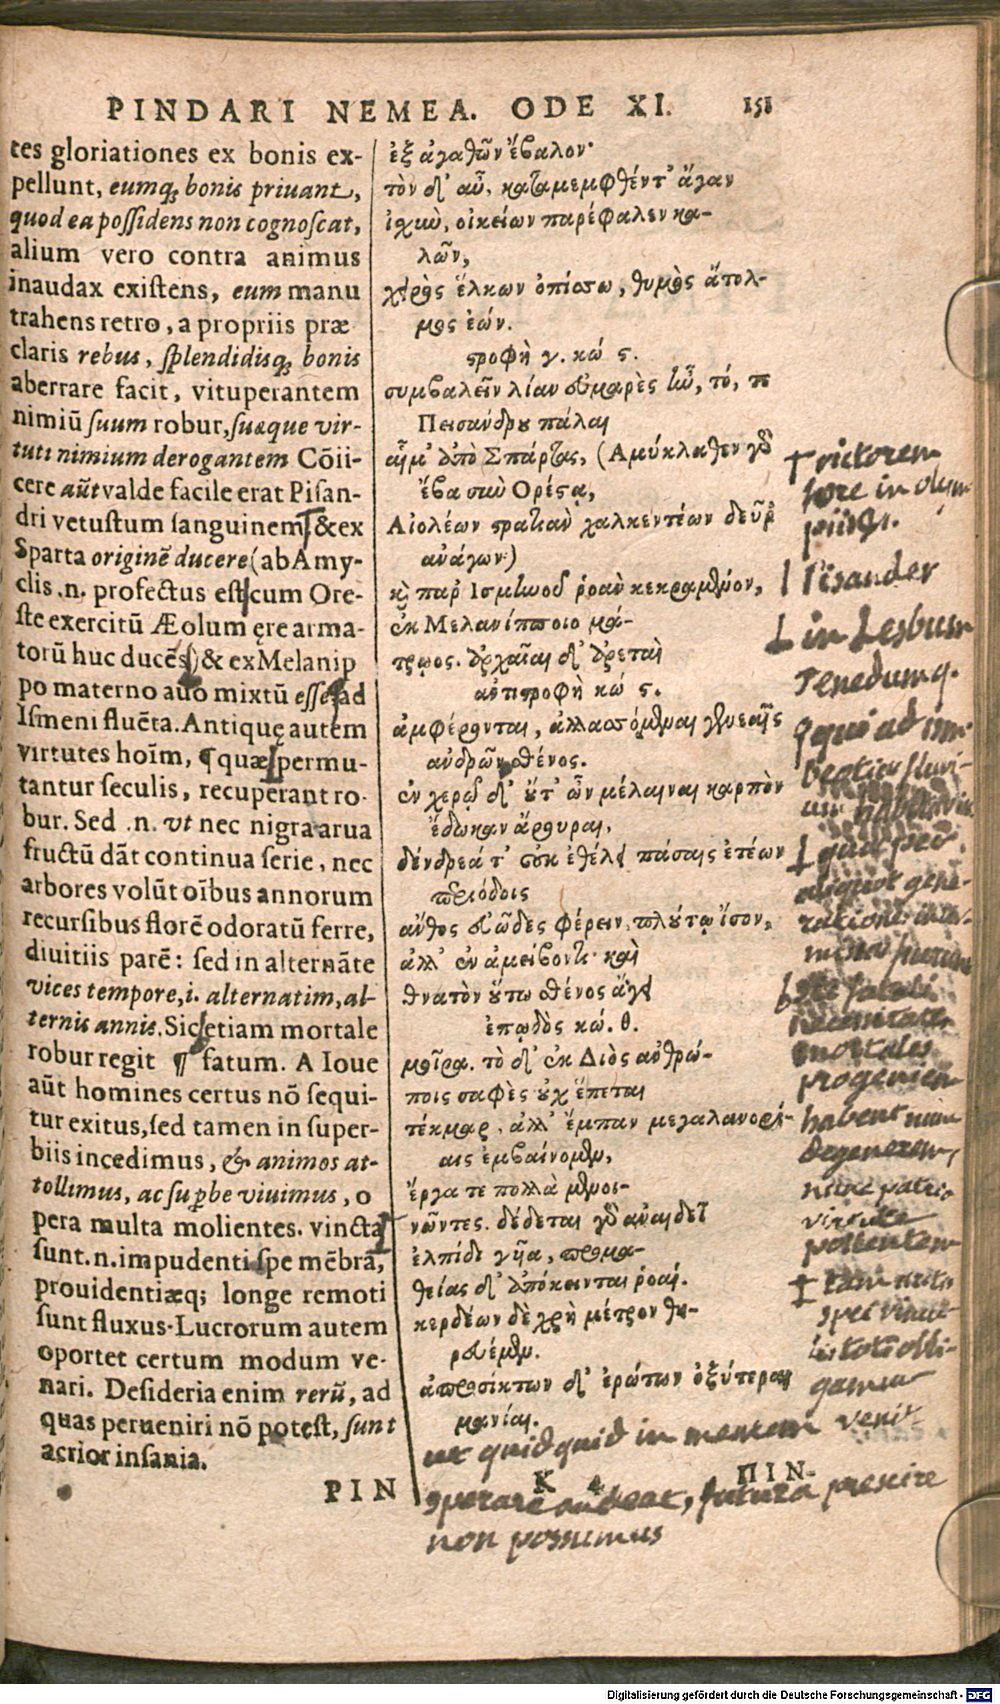 PINDARI NEMEA. ODE XI. 151
tes gloriationes ex bonis ex-
pellunt, eumq; bonis priuant,
quod ea possidens non cognoscat,
alium vero contra animus
inaudax existens, eum manu
trahens retro, a propriis præ
claris rebus, splendidisq; bonis
aberrare facit, vituperantem
nimiũ suum robur, suæque vir-
tuti nimium derogantem Cõii-
cere aũt valde facile erat Pisan-
dri vetustum sanguinem, & ex
Sparta originẽ ducere (ab Amy-
clis .n. profectus est cum Ore-
ste exercitũ Æolum ęre arma-
torũ huc ducẽs) & ex Melanip
po materno auo mixtũ esse ad
Ismeni fluẽta. Antiquę autem
virtutes hoĩm, quæ permu-
tantur seculis, recuperant ro-
bur. Sed .n. vt nec nigra arua
fructũ dãt continua serie, nec
arbores volũt oĩbus annorum
recursibus florẽ odoratũ ferre,
diuitiis parẽ: sed in alternãte
vices tempore, i. alternatim, al-
ternis annis. Sic etiam mortale
robur regit fatum. A Ioue
aũt homines certus nõ sequi-
tur exitus, sed tamen in super-
biis incedimus, & animos at-
tollimus, ac supbe viuimus, o
pera multa molientes. vincta
sunt .n. impudenti spe mẽbra,
prouidentiæq; longe remoti
sunt fluxus. Lucrorum autem
oportet certum modum ve-
nari. Desideria enim rerũ, ad
quas perueniri nõ potest, sunt
acrior insania.
ἐξ ἀγαθῶν ἔβαλον·
τὸν δ' αὖ, καταμεμφθέντ' ἄγαν
ἰχὺν, οἰκείων παρέσφαλεν κα-
λῶν,
χειρὸς ἕλκων ὀπίσσω, θυμὸς ἄτολ-
μος ἐών.
στροφὴ γ. κώ ϛ.
συμβαλεῖν λίαν εὐμαρὲς ἦν, τό, τε
Πεισάνδρου πάλαι
αἷμ' ἀπὸ Σπάρτας, (Ἀμύκλαθεν γὰρ
ἔβα σὺν Ὀρέστᾳ,
Αἰολέων στρατιὰν χαλκεντέων δεῦρ'
ἀνάγων·)
καὶ παρ' Ἰσμηνοῦ ῥοὰν κεκραμένον,
ἐκ Μελανίπποιο μά-
τρωος. ἀρχαῖαι δ' ἀρεταὶ
ἀντιστροφὴ κώ ϛ.
ἀμφέρονται, ἀλλασσόμεναι γενεαῖς
ἀνδρῶν σθένος.
ἐν χερῷ δ' οὔτ' ὦν μέλαιναι καρπὸν
ἔδωκαν ἄρουραι,
δένδρεά τ' οὐκ ἐθέλει πάσαις ἐτέων
περιόδοις
ἄνθος εὐῶδες φέρειν, πλούτῳ ἴσον,
ἀλλ' ἐν ἀμείβοντι· καὶ
θνατὸν οὕτω σθένος ἄγει
ἐπῳδὸς κώ. θ.
μοῖρα. τὸ δ' ἐκ Διὸς ἀνθρώ-
ποις σαφὲς οὐχ ἕπεται
τέκμαρ, ἀλλ' ἔμπαν μεγαλανορί-
αις ἐμβαίνομεν,
ἔργα τε πολλὰ μενοι-
νῶντες. δέδεται γὰρ ἀναιδεῖ
ἐλπίδι γυῖα, προμα-
θείας δ' ἀπόκεινται ῥοαί.
κερδέων δὲ χρὴ μέτρον θη-
ρευέμεν.
ἀπροσίκτων δ' ἐρώτων ὀξύτεραι
μανίαι.
victorem
fore in olym
piis
Pisander
in Lesbum
Tenedumq.
qui ad
quia per
aliquot gene-
rationes
fatali
necessitate
mortales
progeniem
habent
degenerem,
patria
virtute
pollentem
tam
spei
gamur
ut quidquid in mentem venit
sperare audeat, futura prescire
non possumus
PIN K 4 ΠΙΝ-
Digitalisierung gefördert durch die Deutsche Forschungsgemeinschaft - DFG